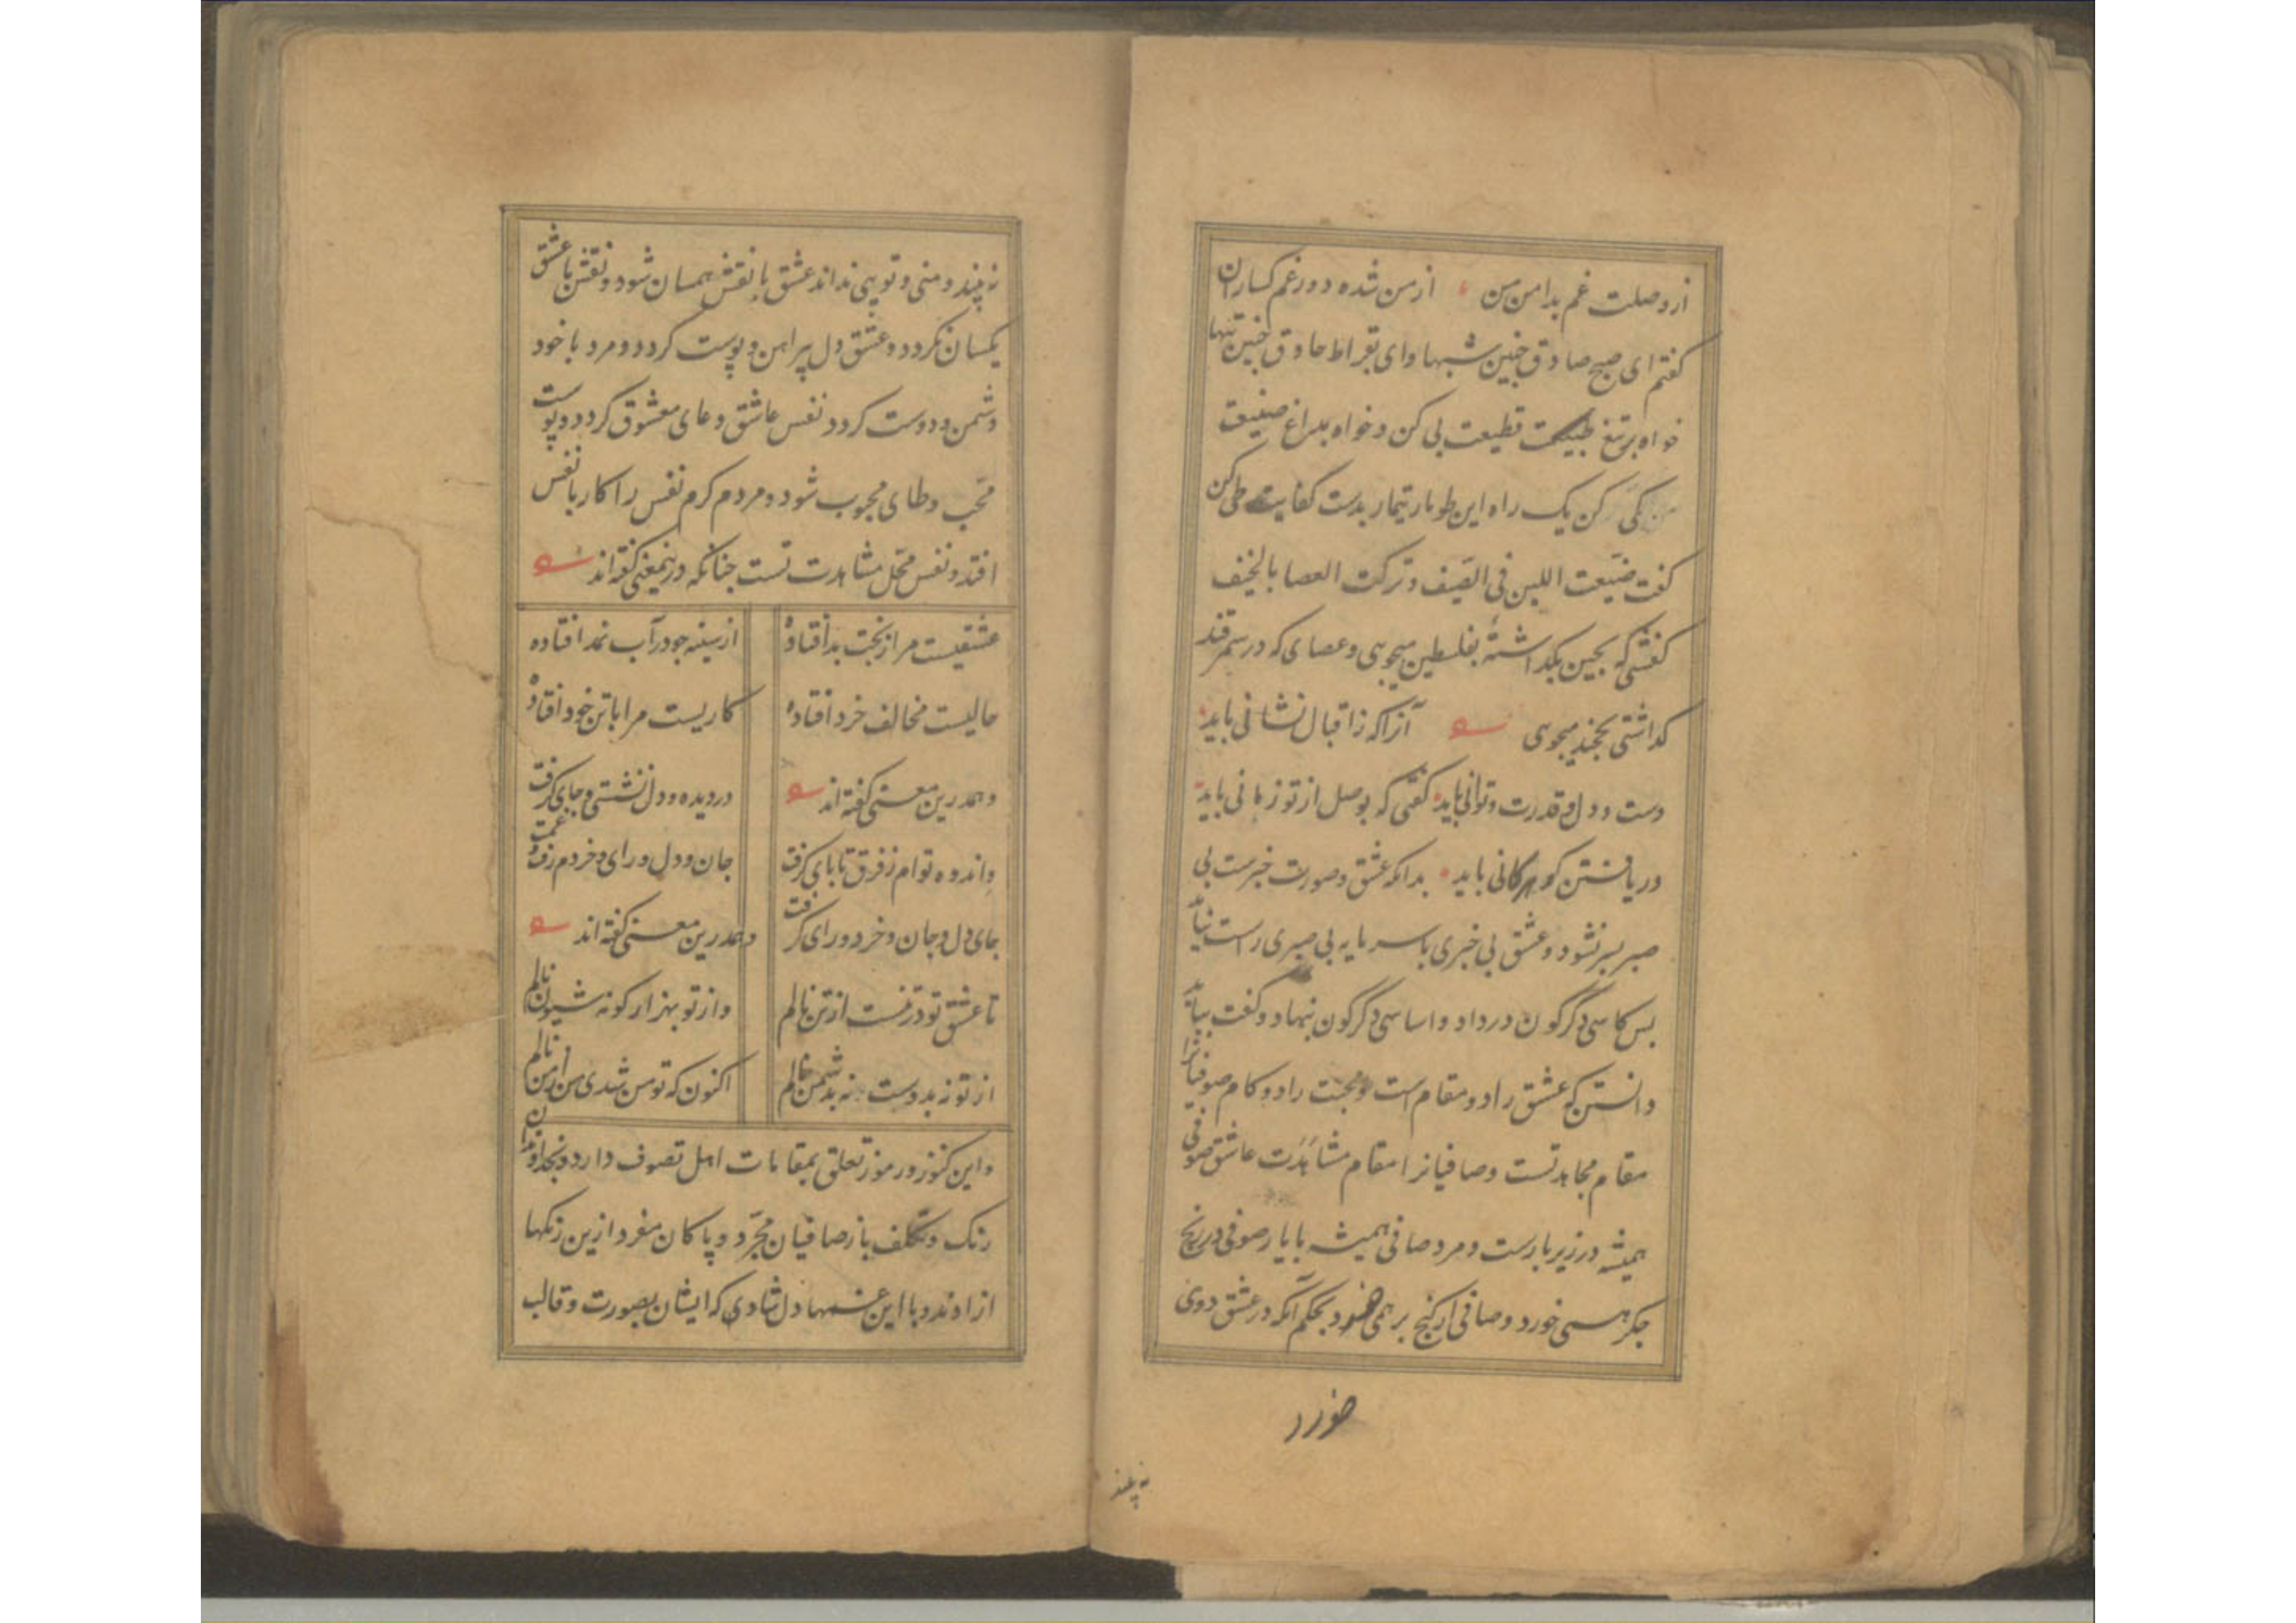 از وصلت غم بدامن من از من شده دور غم کساران
کفتم ای صبح صادق چنین شبها وای بقراط حاذق چنین تبها
خواه بر تیغ طبیعت قطیعت پی کن و خواه بداغ صنیعت
کی کن یک راه این طومار تیمار بدست کفایت طی کن
کفت ضیّعت اللبن فی الصّیف و ترکت العصا بالخیف
کفشی که بچین بکداشتهٔ بفلسطین میجویی و عصای که در سمرقند
کداشتی بخجند میجوی آنرا که ز اقبال نشانی باید
دست و دل و قدرت و توانی باید کفتی که بوصل از تو زمانی باید
دریافتن کوهر کانی باید بدانکه عشق و صورت خبرست بی
صبر بسر نشود و عشق بی خبری با سرمایه بی صبری راست نیاید
پس کاسی دگرگون درداد و اساسی دگرگون بنهاد و کفت بباید
دانستن که عشق را دو مقام است و محبت را دو کام صوفیانرا
مقام مجاهدتست و صافیانرا مقام مشاهدت عاشق صوفی
همیشه در زیر بارست و مرد صافی همیشه با یار صوفی در رنج
جکر همی خورد و صافی از کنج بر همی خورد بحکم آنکه در عشق دوی
خورد
نه پسندد
نه پسندد و منی و تویی نداند عشق با نقش همسان شود و نقش با عشق
یکسان نکردد و عشق دل پیراهن و پوست کردد و مرد با خود
دشمن و دوست کردد نفس عاشق وعای معشوق کردد و پوست
محب وطای محبوب شود و مردم کرم نفس را کار با نفس
افتد و نفس محل مشاهدت تست چنانکه درینمعنی کفته اند
عشقیست مرا ز بخت بد افتاده از سینه چو در آب نمد افتاده
حالیست مخالف خرد افتاده کاریست مرا با تن خود افتاده
و همدرین معنی کفته اند در دیده و دل نشستی و جای کرفت
و اندوه توام ز فرق تا پای کرفت جان و دل و رای و خردم رفت و غمت
جای دل و جان و خرد و رای کرفت و همدرین معنی کفته اند
تا عشق تو در منست از تن نالم و از تو بهزار کونه شیون نالم
از تو نه بدوست نه بدشمن نالم اکنون که تو من شدی من از من نالم
و این کنوز و رموز تعلق بمقامات اهل تصوف دارد و بخداوندان
رنک و تکلف باز صافیان مجرّد و پاکان مفرد ازین رنکها
ازادند و با این غمها دل شادی که ایشان بصورت و قالب